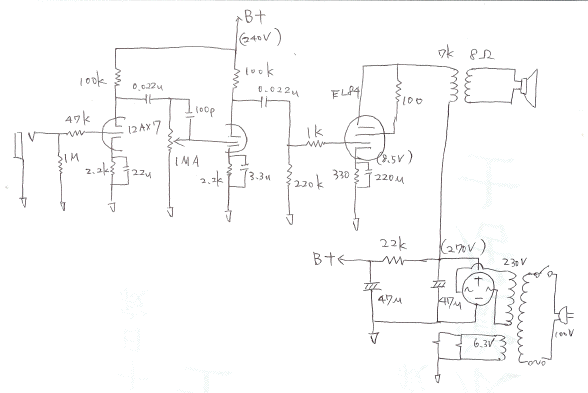 B+
(240V)
7k 8Ω
100k
100k
0.022u
0.022u
EL84
100p
100
47k
12AX7
1k
1M
1MA
(8.5V)
2.2k
22u
2.2k
3.3u
220k
330
220u
22k
(270V)
B+
230V
47u
47u
6.3V
100V